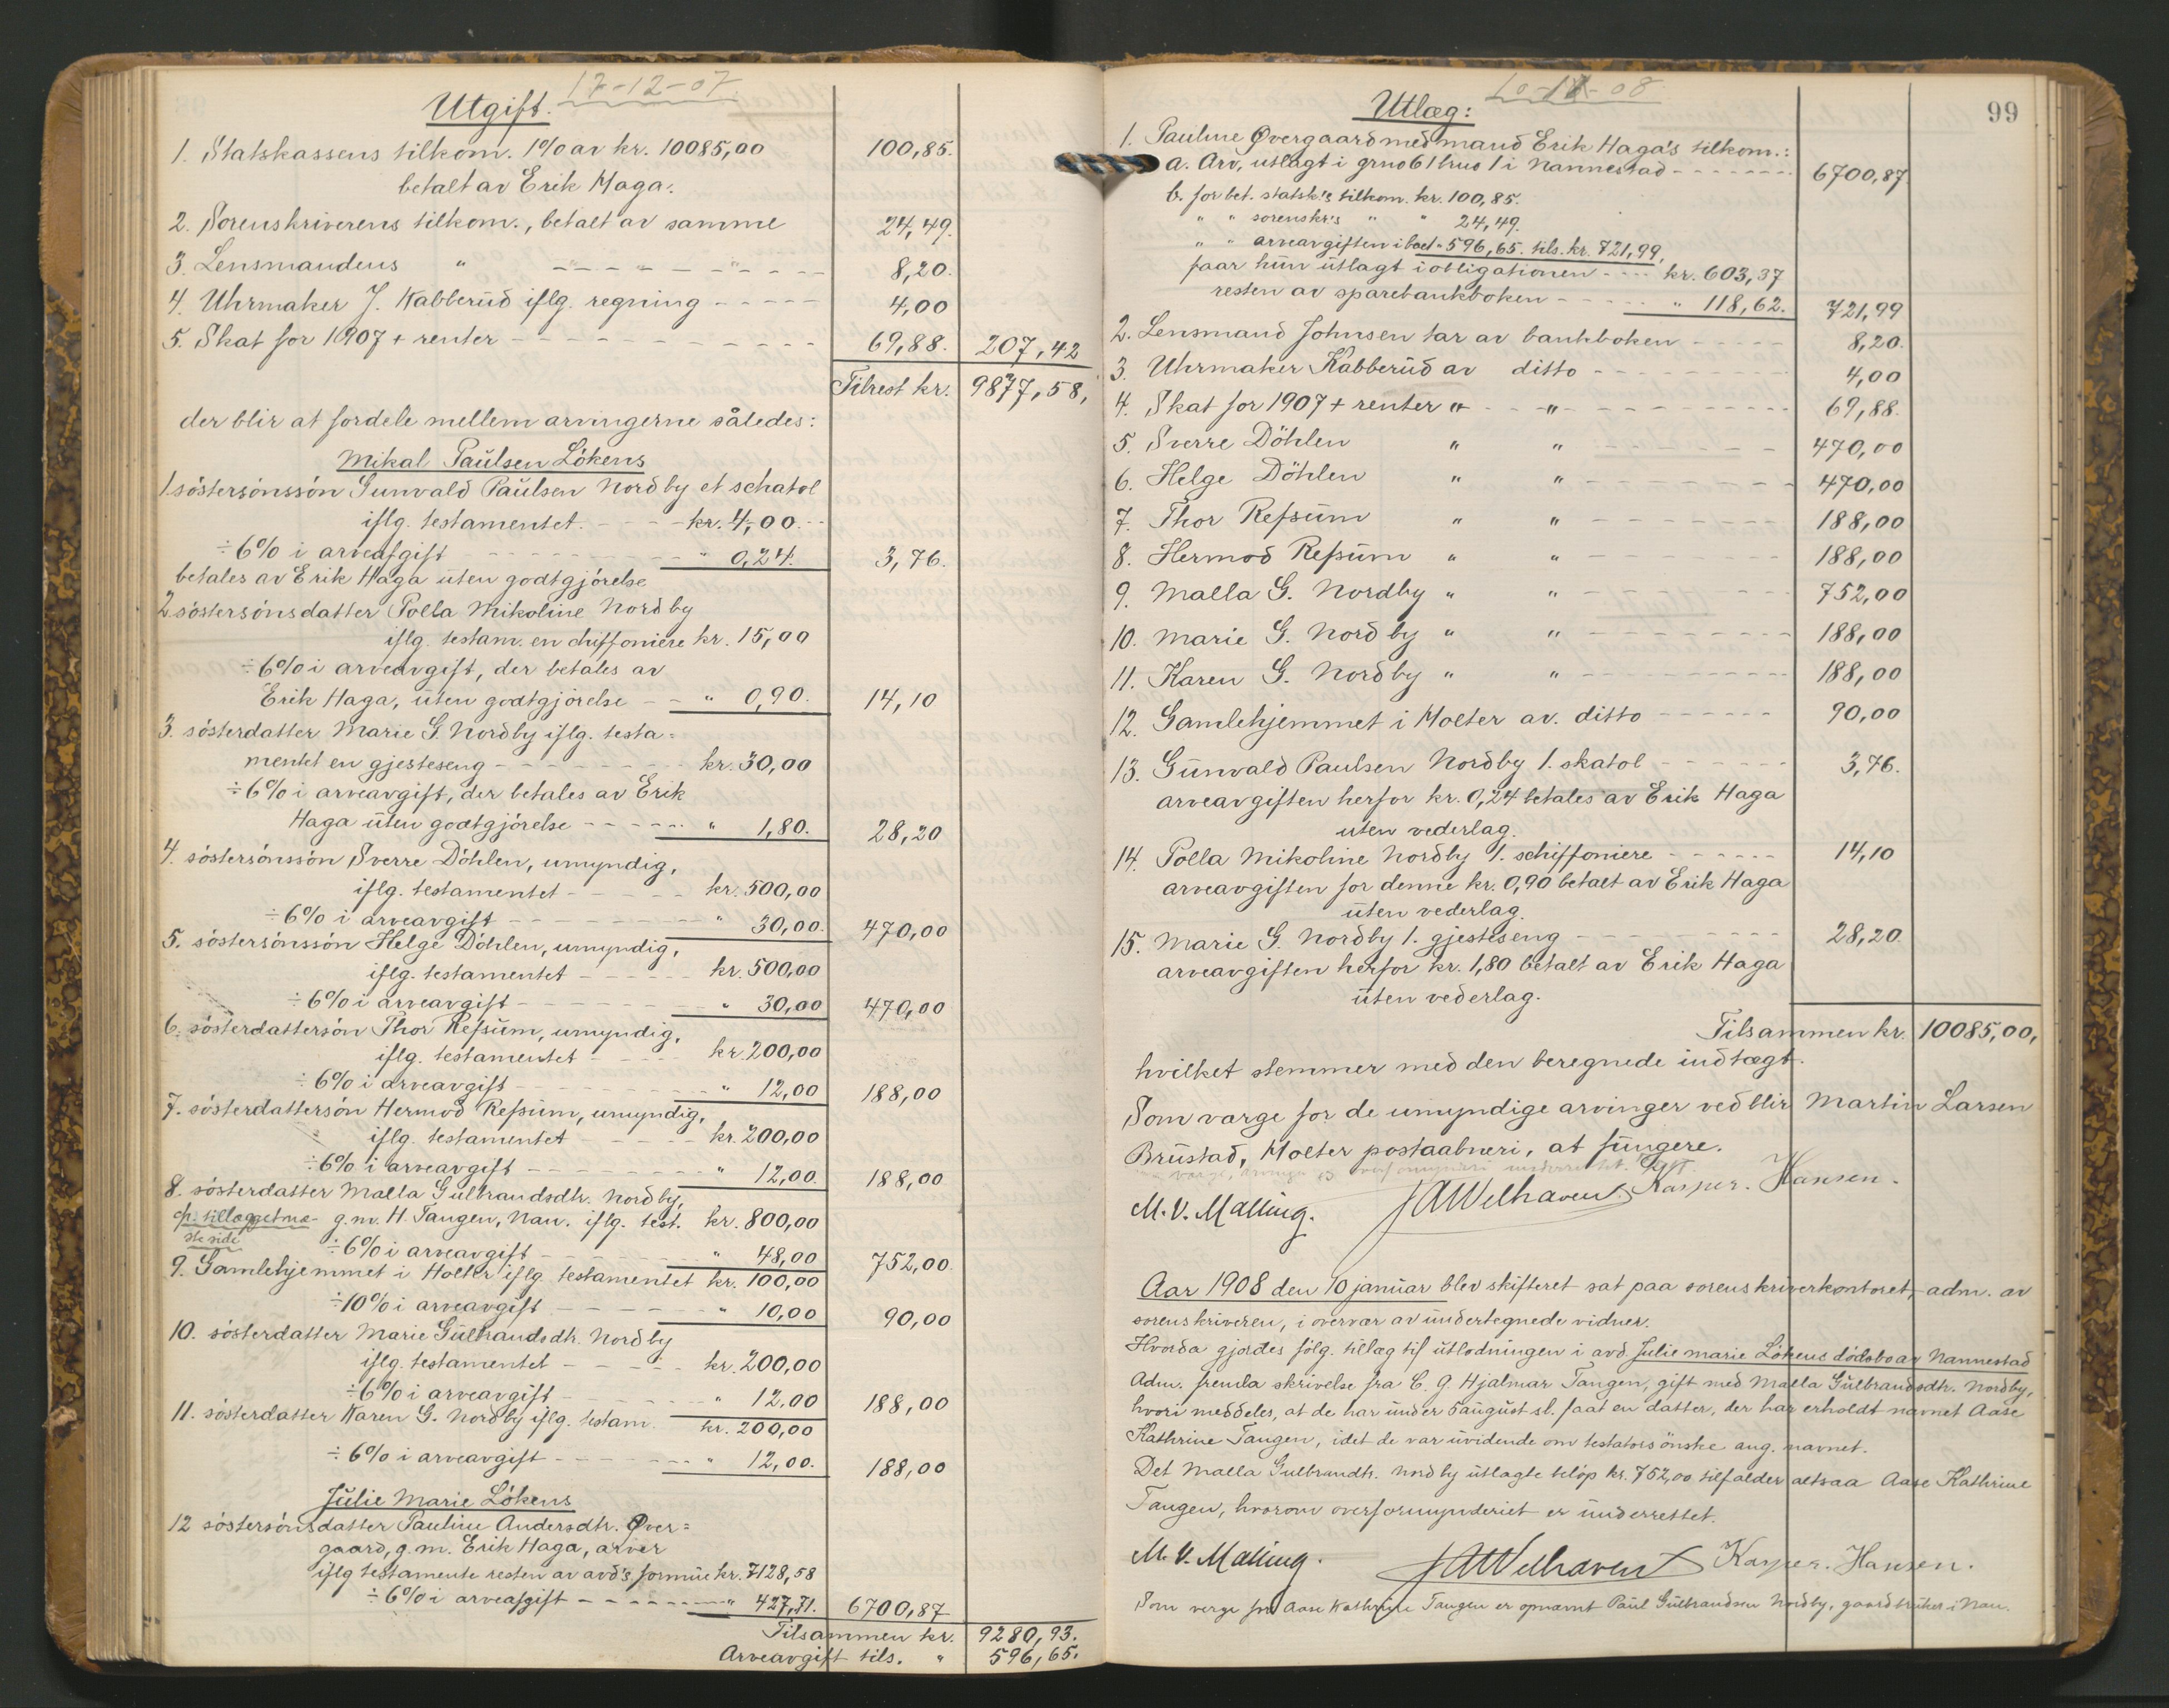 17-12-07.
Utgift.
1. Statskassens tilkom. 1% av kr. 10085,00 100,85.
betalt av Erik Haga.
2. Sorenskriverens tilkom., betalt av samme 24,49.
3. Lensmandens " - - " - - " - - 8,20.
4. Uhrmaker J. Kabberud iflg. regning - - - - - 4,00
5. Skat for 1907 + renter - - - - - - - - 69,88. 207,42
Tilrest kr. 9877,58,
der blir at fordele mellem arvingerne således:
Mikal Paulsen Lökens
1. söstersönssön Gunvald Paulsen Nordby et schatol
iflg. testamentet. - - - - kr. 4,00. - -
÷ 6% i arveafgift - - - - - " 0,24. 3,76.
betales av Erik Haga uten godtgjörelse
2. söstersönsdatter Polla Mikoline Nordby
iflg. testam. en chiffoniere kr. 15,00
÷ 6% i arveavgift, der betales av
Erik Haga, uten godtgjörelse - - " 0,90. 14,10
3. sösterdatter Marie G. Nordby iflg. testa=
mentet en gjesteseng - - - - - kr. 30,00
÷ 6% i arveavgift, der betales av Erik
Haga uten godtgjörelse - - - - - " 1,80. 28,20
4. söstersönssön Sverre Döhlen, umyndig,
iflg. testamentet - - - - - kr. 500,00
÷ 6% i arveavgift - - - - - " 30,00. 470,00
5. söstersönssön Helge Döhlen, umyndig,
iflg. testamentet - - - - - kr. 500,00
÷ 6% i arveavgift - - - - - " 30,00 470,00
6. sösterdattersön Thor Refsum, umyndig,
iflg. testamentet - - - - kr. 200,00
÷ 6% i arveavgift - - - - - " 12,00 188,00
7. sösterdattersön Hermod Refsum, umyndig,
iflg. testamentet - - - - - kr. 200,00
÷ 6% i arveavgift - - - - - " 12,00. 188,00
8. sösterdatter Malla Gulbrandsdtr. Nordby,
cfr. tillægget næ- g. m. H. Tangen, Nan. iflg. test. kr. 800,00
ste side ÷ 6% i arveavgift - - - - " 48,00 752,00.
9. Gamlehjemmet i Holter iflg. testamentet kr. 100,00
÷ 10% i arveavgift - - - - - " 10,00 90,00
10. sösterdatter Marie Gulbrandsdtr. Nordby
iflg. testamentet - - - - - kr. 200,00
÷ 6% i arveavgift - - - - " 12,00 188,00
11. sösterdatter Karen G. Nordby iflg. testam. kr. 200,00
÷ 6% i arveavgift - - - - - " 12,00. 188,00
Julie Marie Lökens
12 söstersönsdatter Pauline Andersdtr. Över=
gaard, g. m. Erik Haga, arver
iflg testamente resten av avd's formue kr. 7128,58
÷ 6% i arveafgift - - - - - - " 427,71. 6700,87
Tilsammen kr. 9280,93.
Arveavgift tils. " 596,65.
10-1-08
99
Utlæg:
1. Pauline Övergaard med mand Erik Haga's tilkom.:
a. Arv, utlagt i grno 61 bruo 1 i Nannestad - - - - - - - 6700,87.
b. for bet. statsk.'s tilkom. kr. 100,85.
" " sorenskr's " " 24,49.
" " arveavgiften i boet " 596,65. tils. kr. 721,99,
faar hun utlagt i obligationen - - - - kr. 603,37
resten av sparebankboken - - - - - " 118,62. 721,99
2. Lensmand Johnsen tar av bankboken - - - - - 8,20.
3. Uhrmaker Kabberud av ditto - - - - - - - - 4,00
4. Skat for 1907 + renter " - - " - - - - - - - 69,88.
5. Sverre Döhlen " " - - - - - - 470,00
6. Helge Döhlen " " - - - - - - - 470,00
7. Thor Refsum " " - - - - - - 188,00
8. Hermod Refsum " " - - - - - - 188,00
9. Malla G. Nordby " " - - - - - - 752,00
10. Marie G. Nordby " " - - - - - - - 188,00
11. Karen G. Nordby " " - - - - - - - 188,00
12. Gamlehjemmet i Holter av. ditto - - - - - - 90,00
13. Gunvald Paulsen Nordby 1. skatol - - - - - - 3,76.
arveavgiften herfor kr. 0,24 betales av Erik Haga
uten vederlag.
14. Polla Mikoline Nordby 1. schiffoniere - - - - - - 14,10
arveavgiften for denne kr. 0,90 betalt av Erik Haga
uten vederlag.
15. Marie G. Nordby 1. gjesteseng - - - - - - - - 28,20
arveavgiften herfor kr. 1,80 betalt av Erik Haga
uten vederlag.
Tilsammen kr. 10085,00,
hvilket stemmer med den beregnede indtægt.
Som værge for de umyndige arvinger vedblir Martin Larsen
Brustad, Holter postaabneri, at fungere.
overformynderi underrettet.
M. V. Malling. JAWelhaven. Kasper. Hansen.
Aar 1908 den 10 januar blev skifteret sat paa sorenskriverkontoret, adm. av
sorenskriveren, i overvær av undertegnede vidner.
Hvorda gjordes fölg. tillæg til utlodningen i avd. Julie Marie Lökens dödsbo av Nannestad
Adm. fremla skrivelse fra C. G. Hjalmar Tangen, gift med Malla Gulbrandsdtr. Nordby,
hvori meddeles, at de har under 5 august sl. faat en datter, der har erholdt navnet Aase
Kathrine Tangen, idet de var uvidende om testators önske ang. navnet.
Det Malla Gulbrandtr. Nordby utlagte belöp kr. 752,00 tilfalder altsaa Aase Kathrine
Tangen, hvorom overformynderiet er underrettet.
M. V. Malling. JAWelhaven Kasper. Hansen.
Som verge for Aase Kathrine Tangen er opnævnt Paul Gulbrandsen Nordby, gaardbruker i Nan.